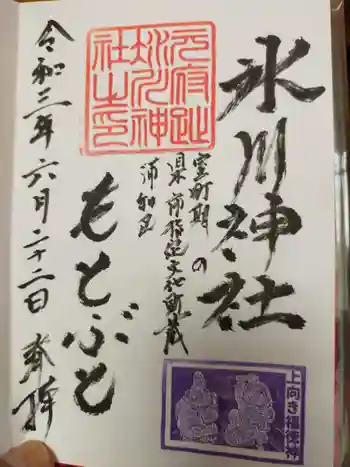 氷川神社
室町期の
県市指定文化財蔵
浦和区
もとぶと
令和三年六月二十二日 奉拝
元府趾氷川神社之印
上向き福徳神